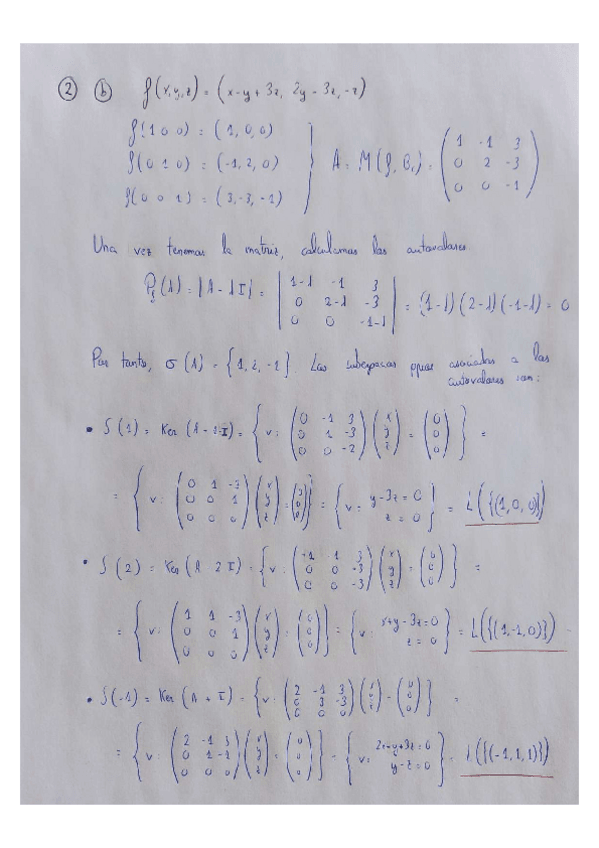 ② ⓑ f(x,y,z) = (x-y+3z, 2y-3z, -z)
f(1 0 0) = (1,0,0)
f(0 1 0) = (-1,2,0)
f(0 0 1) = (3,-3,-1)
A = M(f, B_c) = ( 1 -1 3
0 2 -3
0 0 -1 )
Una vez tenemos la matriz, calculamos los autovalores
P_f(λ) = |A - λI| = | 1-λ -1 3
0 2-λ -3
0 0 -1-λ | = (1-λ)(2-λ)(-1-λ) = 0
Por tanto, σ(A) = {1, 2, -1}. Los subespacios propios asociados a los
autovalores son:
• S(1) = Ker(A - 1·I) = { v : ( 0 -1 3
0 1 -3
0 0 -2 ) ( x y z ) = ( 0 0 0 ) } =
= { v : ( 0 1 -3
0 0 1
0 0 0 ) ( x y z ) = ( 0 0 0 ) } = { v : y-3z=0
z=0 } = L({(1,0,0)})
• S(2) = Ker(A - 2I) = { v : ( -1 -1 3
0 0 -3
0 0 -3 ) ( x y z ) = ( 0 0 0 ) } =
= { v : ( 1 1 -3
0 0 1
0 0 0 ) ( x y z ) = ( 0 0 0 ) } = { v : x+y-3z=0
z=0 } = L({(1,-1,0)})
• S(-1) = Ker(A + I) = { v : ( 2 -1 3
0 3 -3
0 0 0 ) ( x y z ) = ( 0 0 0 ) } =
= { v : ( 2 -1 3
0 1 -1
0 0 0 ) ( x y z ) = ( 0 0 0 ) } = { v : 2x-y+3z=0
y-z=0 } = L({(-1,1,1)})